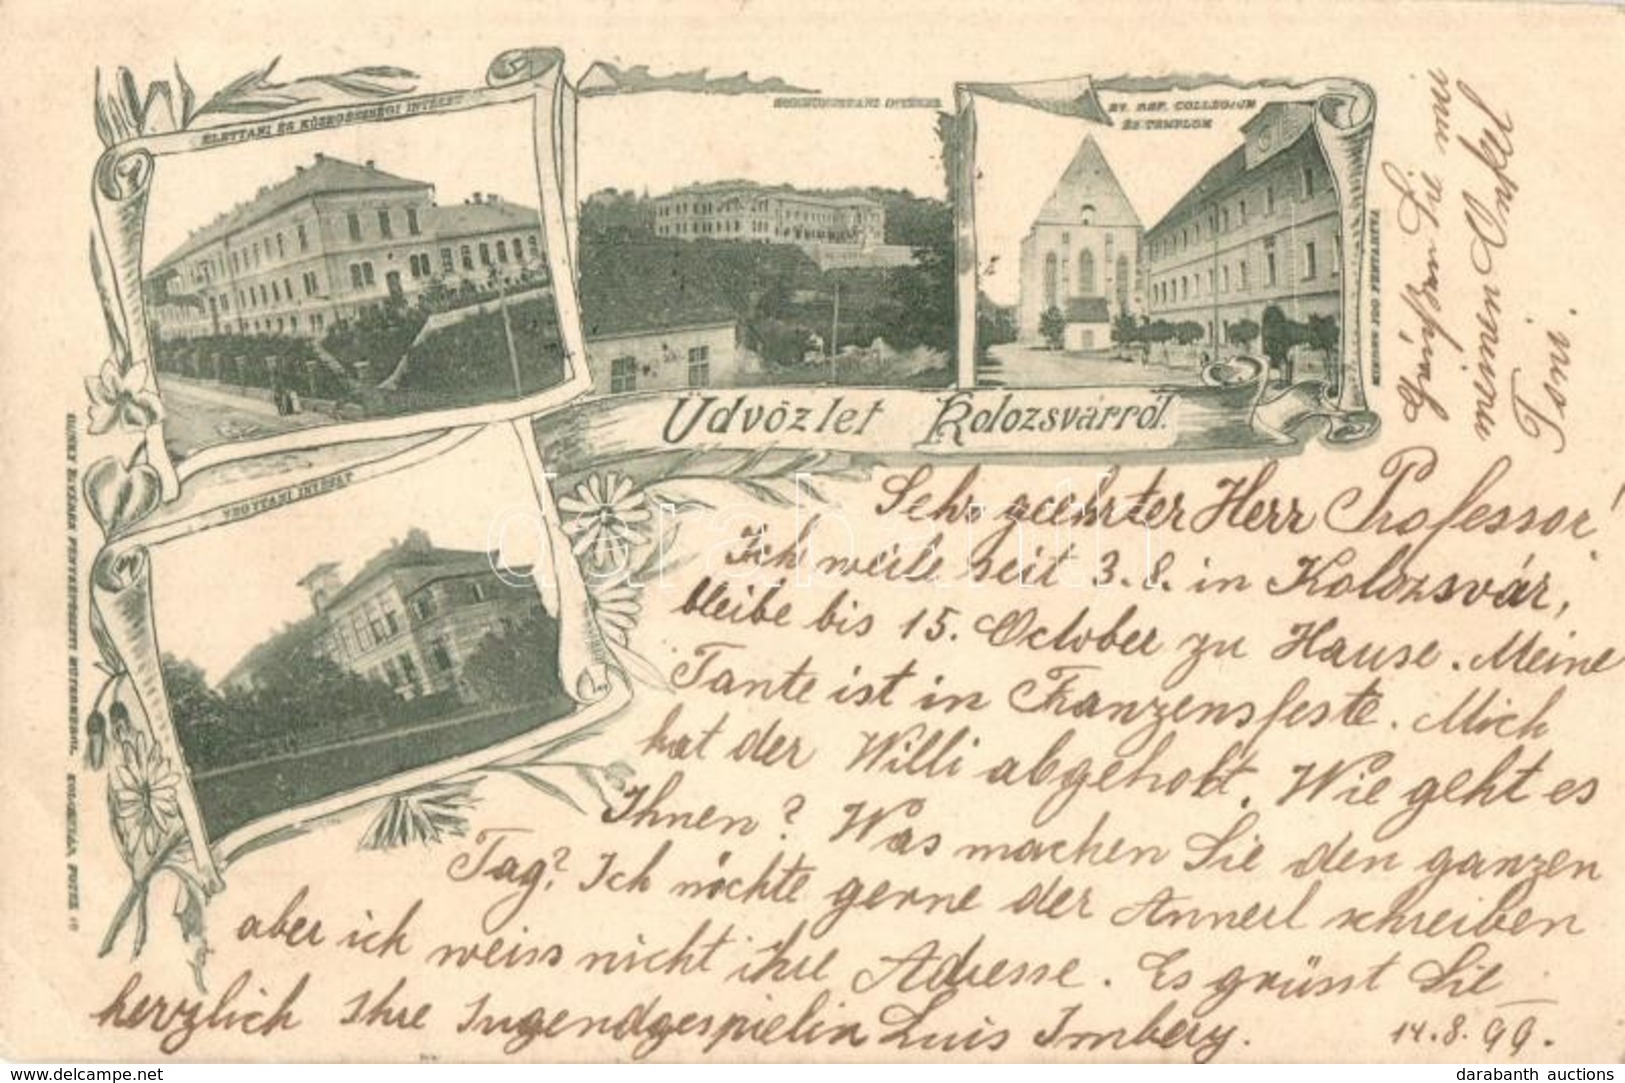 ÉLETTANI ÉS KÖZEGÉSZSÉGI INTÉZET
EV. REF. COLLEGIUM
ÉS TEMPLOM
Üdvözlet Kolozsvárról.
VEGYTANI INTÉZET
Sehr geehrter Herr Professor!
Ich weile seit 3. 8. in Kolozsvár,
bleibe bis 15. October zu Hause. Meine
Tante ist in Franzensfeste. Mich
hat der Willi abgeholt. Wie geht es
Ihnen? Was machen Sie den ganzen
Tag? Ich möchte gerne der Annerl schreiben
aber ich weiss nicht ihre Adresse. Es grüsst Sie
herzlich Ihre Jugendgespielin Luis Imbery.
14. 8. 99.
Grüßen Sie mir
meinen Onkel
Toni.
darabanth
www.delcampe.net
darabanth auctions